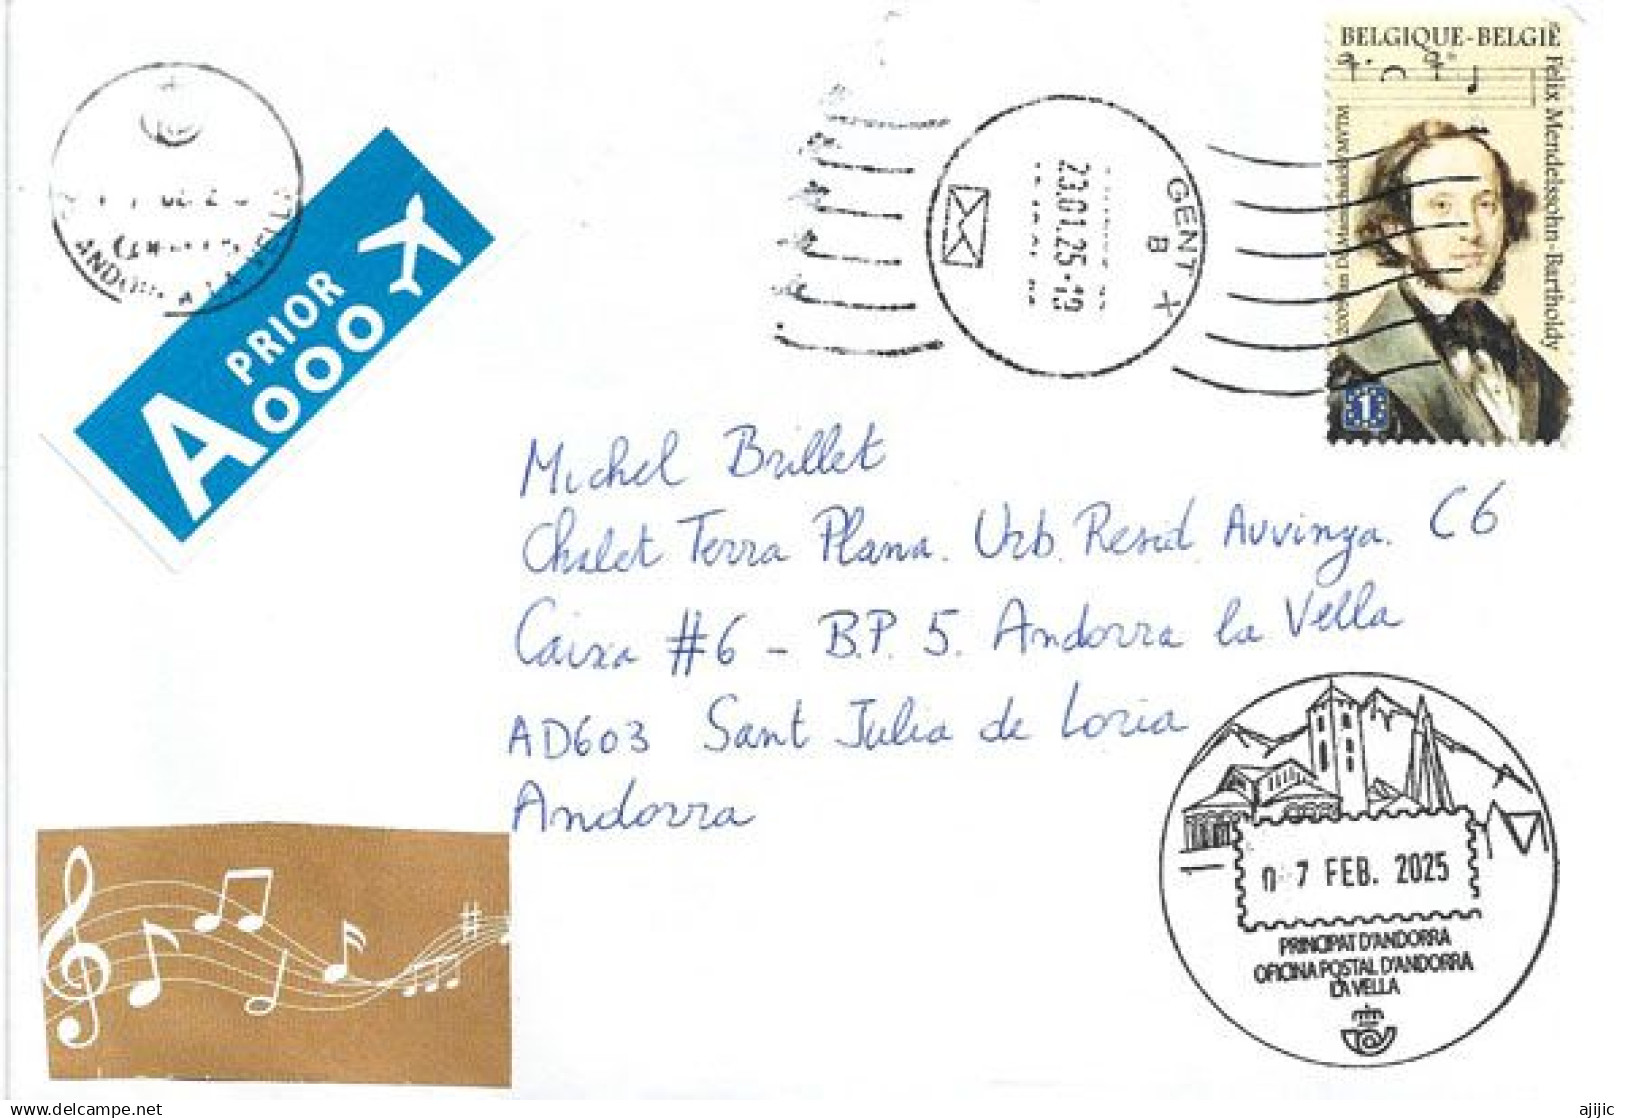 BELGIQUE-BELGIË
Félix Mendelssohn-Bartholdy
MVTM
1
GENT X
B
23.01.25-19
ANDORRA LA VELLA
PRIOR
A
Michel Brillet
Chalet Terra Plana. Urb. Resid Auvinya. C6
Caixa #6 - B.P. 5. Andorra la Vella
AD603 Sant Julia de Loria
Andorra
07 FEB. 2025
PRINCIPAT D'ANDORRA
OFICINA POSTAL D'ANDORRA
LA VELLA
www.delcampe.net
ajijic